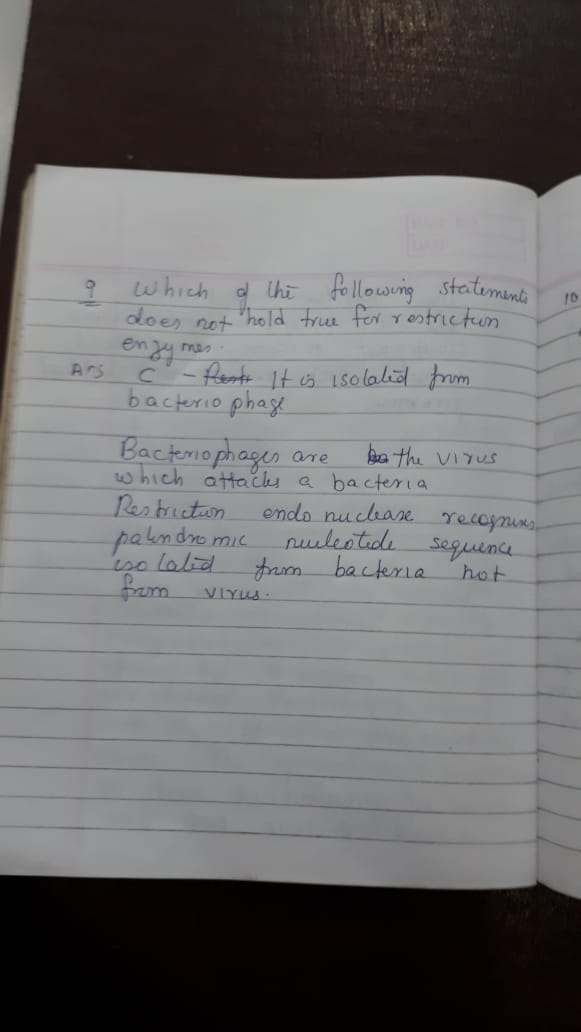 9 Which of the following statements
does not hold true for restriction
enzymes.
Ans C - It is isolated from
bacteriophage
Bacteriophages are the virus
which attacks a bacteria
Restriction endo nuclease recognises
palindromic nucleotide sequence
isolated from bacteria not
from virus.
10